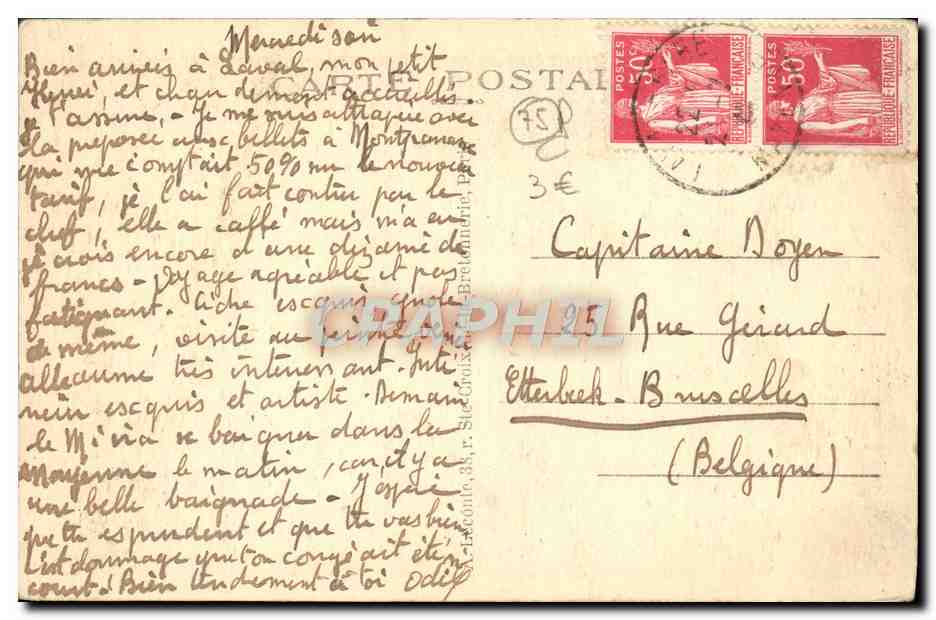 Mercredi soir
Bien arrivés à Laval, mon petit
Henri, et chaudement accueillis.
t'assure. Je me suis attrapée avec
la préposée aux billets à Montparnasse
qui me comptait 50% sur le nouveau
tarif, je l'ai fait contrer par le
chef, elle a caffé mais m'a eu
je crois encore d'une dizaine de
francs - Voyage agréable et pas
fatigant. Riche exquis, gnole
de même, visite au peintre
alleaume très intéressant. Inté
rieur exquis et artiste. Demain
le M ira se baigner dans la
Mayenne le matin, car il y a
une belle baignade - J'espère
que tu es prudent et que tu vas bien
C'est dommage que ton congé ait été si
court! Bien tendrement à toi Odile
CARTE POSTALE
A. Leconte, 38, r. Ste-Croix-de-la-Bretonnerie, Paris
75
3 €
POSTES
50c
REPUBLIQUE-FRANÇAISE
POSTES
50c
REPUBLIQUE-FRANÇAISE
CPAPHIL
Capitaine Doyen
25 Rue Gérard
Etterbeek - Bruxelles
(Belgique)